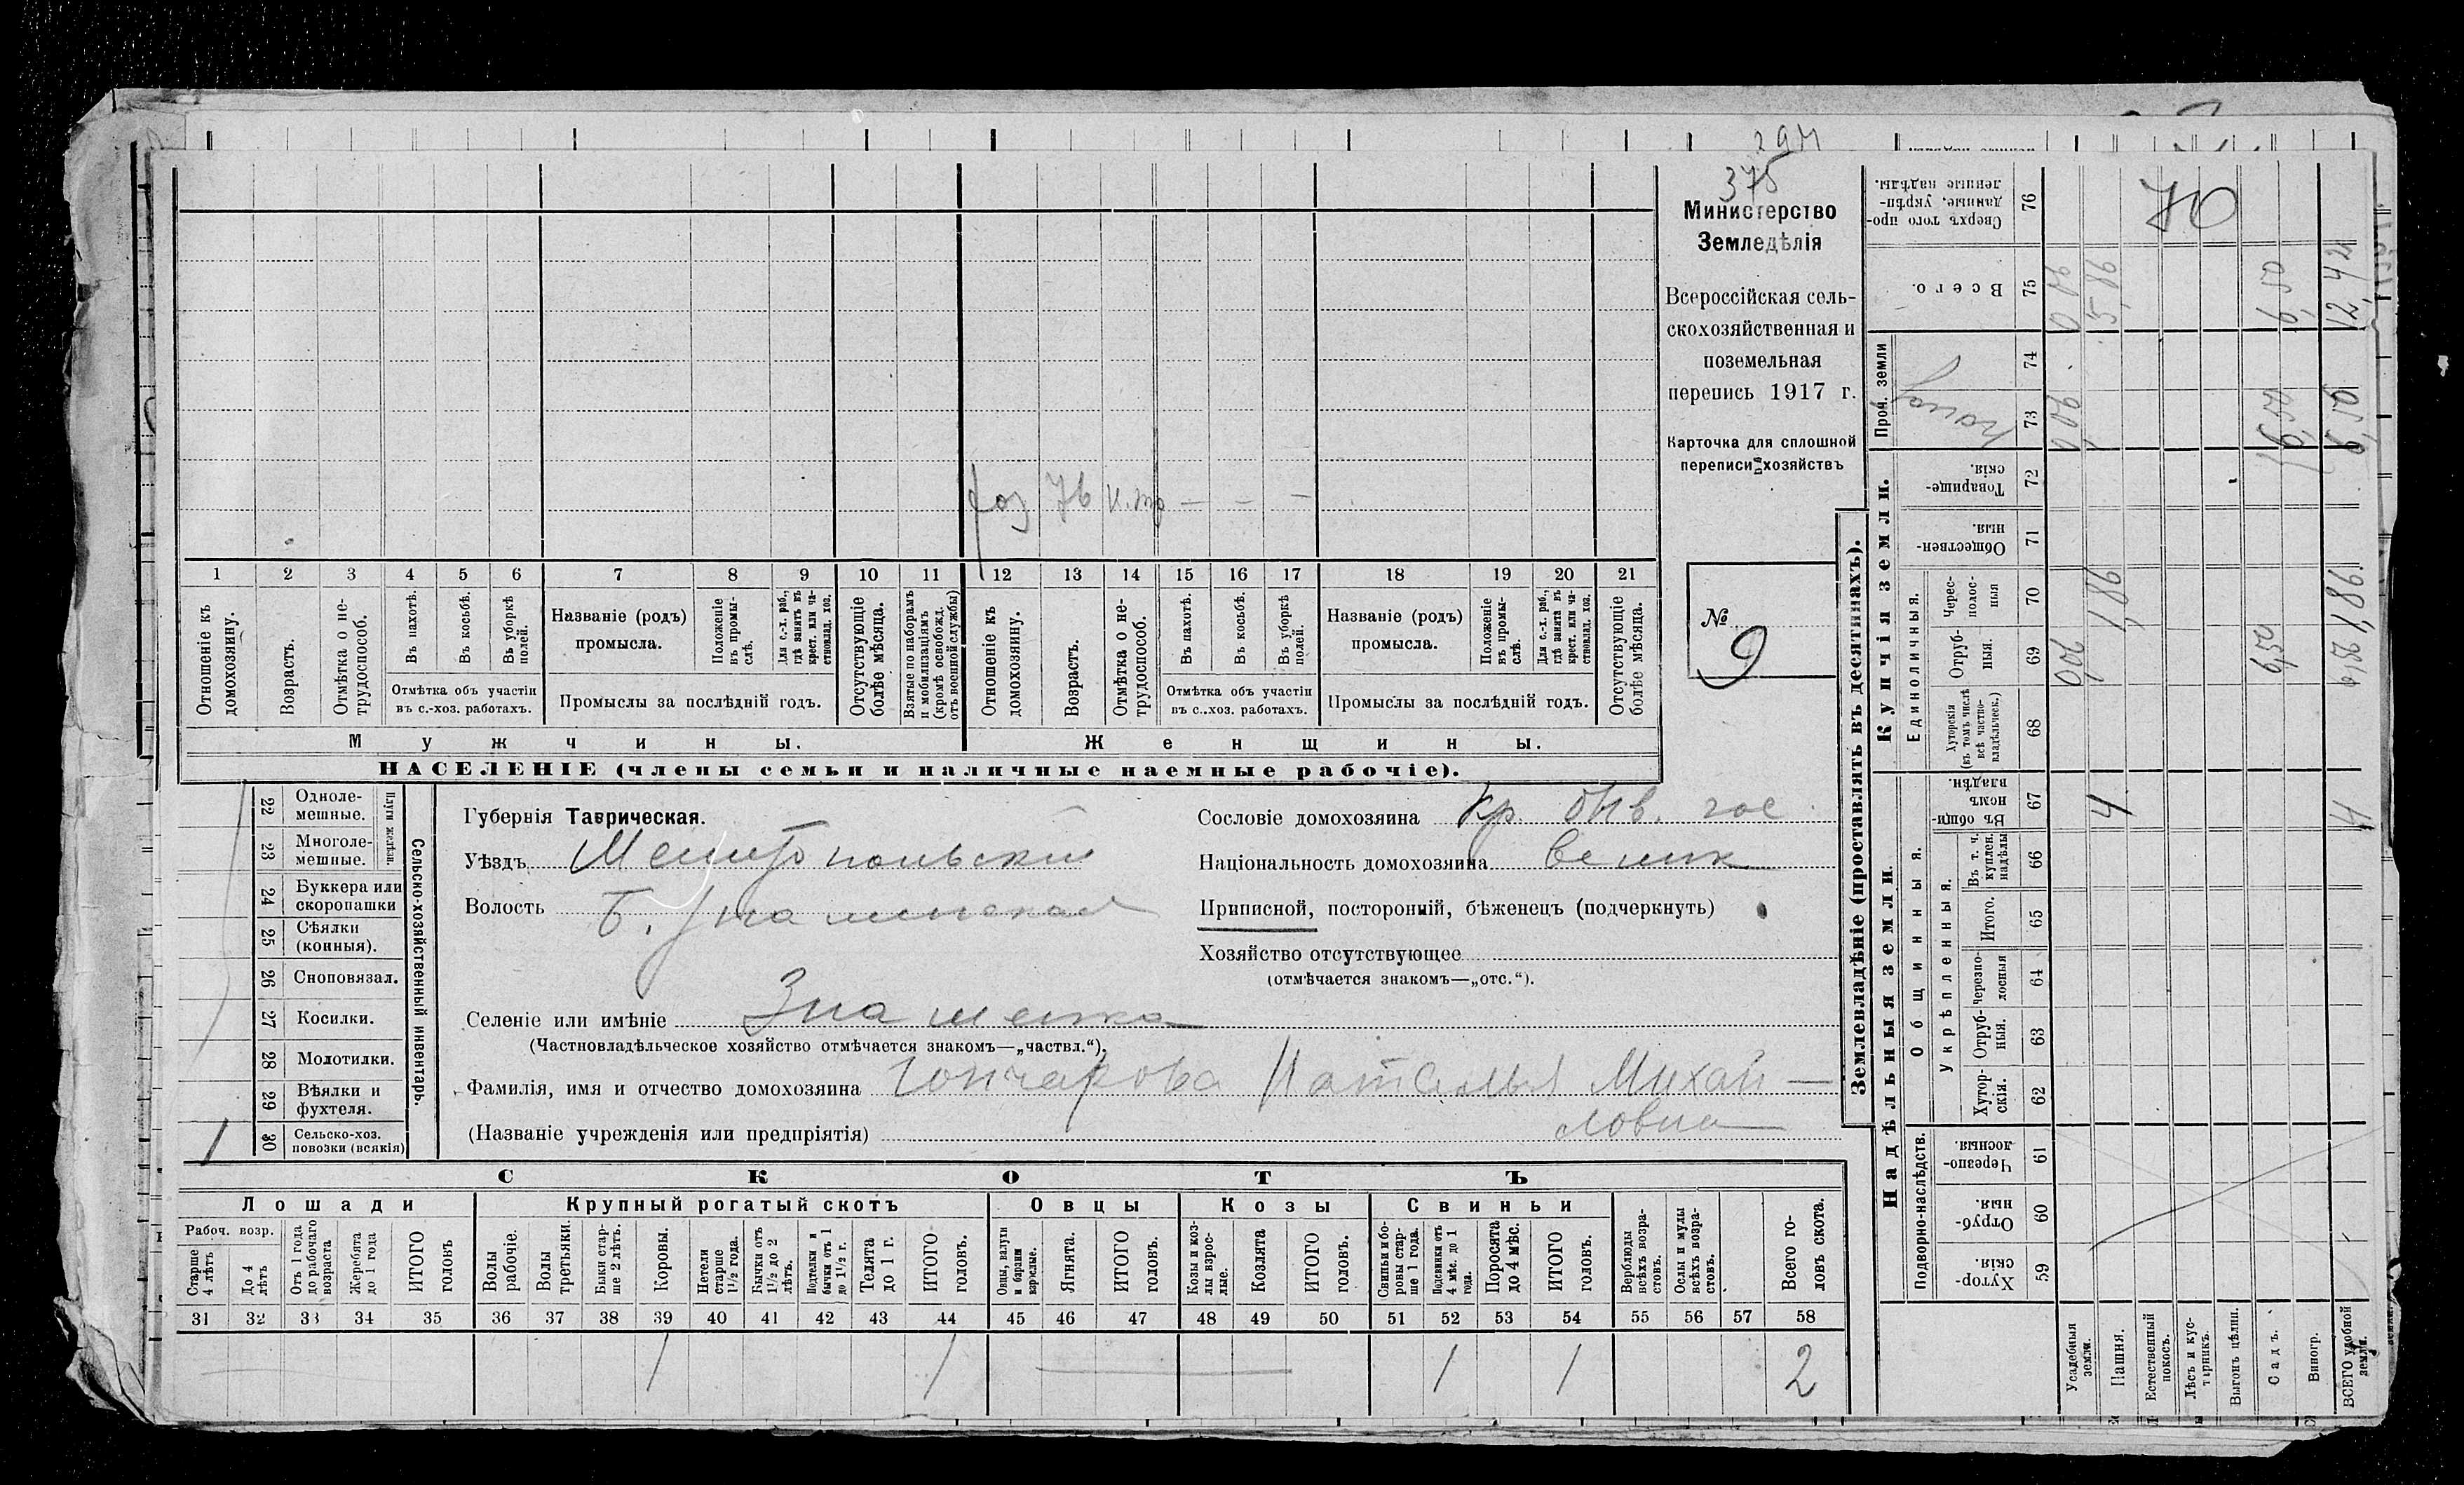 294
375
Министерство
Земледѣлія
Всероссійская сель-
скохозяйственная и
поземельная
перепись 1917 г.
Карточка для сплошной
переписи хозяйствъ
№ 9
хоз 76 н.тр — — —
1 2 3 4 5 6 7 8 9 10 11 12 13 14 15 16 17 18 19 20 21
Отношеніе къ домохозяину.
Возрастъ.
Отмѣтка о не-трудоспособ.
Въ пахотѣ.
Въ косьбѣ.
Въ уборкѣ полей.
Отмѣтка объ участіи
въ с.-хоз. работахъ.
Названіе (родъ)
промысла.
Положеніе въ промы-слѣ.
Для с.-х. раб., гдѣ занятъ въ крест. или ча-стновлад. хоз.
Промыслы за послѣдній годъ.
Отсутствующіе болѣе мѣсяца.
Взятые по наборамъ и мобилизаціямъ (кромѣ освобожд. отъ военной службы)
Отношеніе къ домохозяину.
Возрастъ.
Отмѣтка о не-трудоспособ.
Въ пахотѣ.
Въ косьбѣ.
Въ уборкѣ полей.
Отмѣтка объ участіи
въ с..хоз. работахъ.
Названіе (родъ)
промысла.
Положеніе въ промы-слѣ.
Для с.-х. раб., гдѣ занята въ крест. или ча-стновлад. хоз.
Промыслы за послѣдній годъ.
Отсутствующіе болѣе мѣсяца.
Мужчины.
Женщины.
НАСЕЛЕНІЕ (члены семьи и наличные наемные рабочіе).
Сельско-хозяйственный инвентарь.
Плуги желѣзн.
22 Одноле-мешные.
23 Многоле-мешные.
24 Буккера или скоропашки
25 Сѣялки (конныя).
26 Сноповязал.
27 Косилки.
28 Молотилки.
29 Вѣялки и фухтеля.
30 Сельско-хоз. повозки (всякія) 1
Губернія Таврическая.
Уѣздъ Мелитопольскій
Волость Б. Знаменская
Селеніе или имѣніе Знаменка
(Частновладѣльческое хозяйство отмѣчается знакомъ—„частвл.“).
Фамилія, имя и отчество домохозяина Гончарова Наталья Михай—
(Названіе учрежденія или предпріятія) ловна
Сословіе домохозяина кр.
Національность домохозяина велик
Приписной, посторонній, бѣженецъ (подчеркнуть)
Хозяйство отсутствующее
(отмѣчается знакомъ—„отс.“).
СКОТЪ
Лошади
Крупный рогатый скотъ
Овцы
Козы
Свиньи
Рабоч. возр.
Старше 4 лѣтъ
До 4 лѣтъ
Отъ 1 года до рабочаго возраста
Жеребята до 1 года
ИТОГО головъ
Волы рабочіе.
Волы третьяки.
Быки стар-ше 2 лѣтъ.
Коровы.
Нетели старше 1 1/2 года.
Бычки отъ 1 1/2 до 2 лѣтъ.
Подтелки и бычки отъ 1 до 1 1/2 г.
Телята до 1 г.
ИТОГО головъ.
Овцы, валухи и бараны взрослые.
Ягнята.
ИТОГО головъ.
Козы и коз-лы взрос-лые.
Козлята
ИТОГО головъ.
Свиньи и бо-ровы стар-ше 1 года.
Подсвинки отъ 4 мѣс. до 1 года.
Поросята до 4 мѣс.
ИТОГО головъ.
Верблюды всѣхъ возра-стовъ.
Ослы и мулы всѣхъ возра-стовъ.
Всего го-ловъ скота.
31 32 33 34 35 36 37 38 39 40 41 42 43 44 45 46 47 48 49 50 51 52 53 54 55 56 57 58
1 1 1 1 2
Землевладѣніе (проставлять въ десятинахъ).
Надѣльныя земли.
Купчія земли.
Проч. земли
Подворно-наслѣдств.
Общинныя.
Укрѣпленныя.
Единоличныя.
Хутор-скія. 59
Отруб-ныя. 60
Черезпо-лосныя. 61
Хутор-скія. 62
Отруб-ныя. 63
Черезпо-лосныя 64
Итого. 65
Въ т. ч. куплен. надѣлы 66
Въ общи номъ владѣн. 67
Хуторскія (въ томъ числѣ всѣ частно-владѣльческ.) 68
Отруб-ныя. 69
Черес-полос-ныя 70
Обществен-ныя. 71
Товарище-скія. 72
73
74
Всего. 75
Сверхъ того про-данные, укрѣп-ленные надѣлы. 76
70
Усадебныя земли.
Пашня.
4 1,86 5,86
Естественный покосъ.
Лѣсъ и кус-тарникъ.
Выгонъ цѣлин.
Садъ.
Виногр.
ВСЕГО удобной земли.
4 1,86 12,42